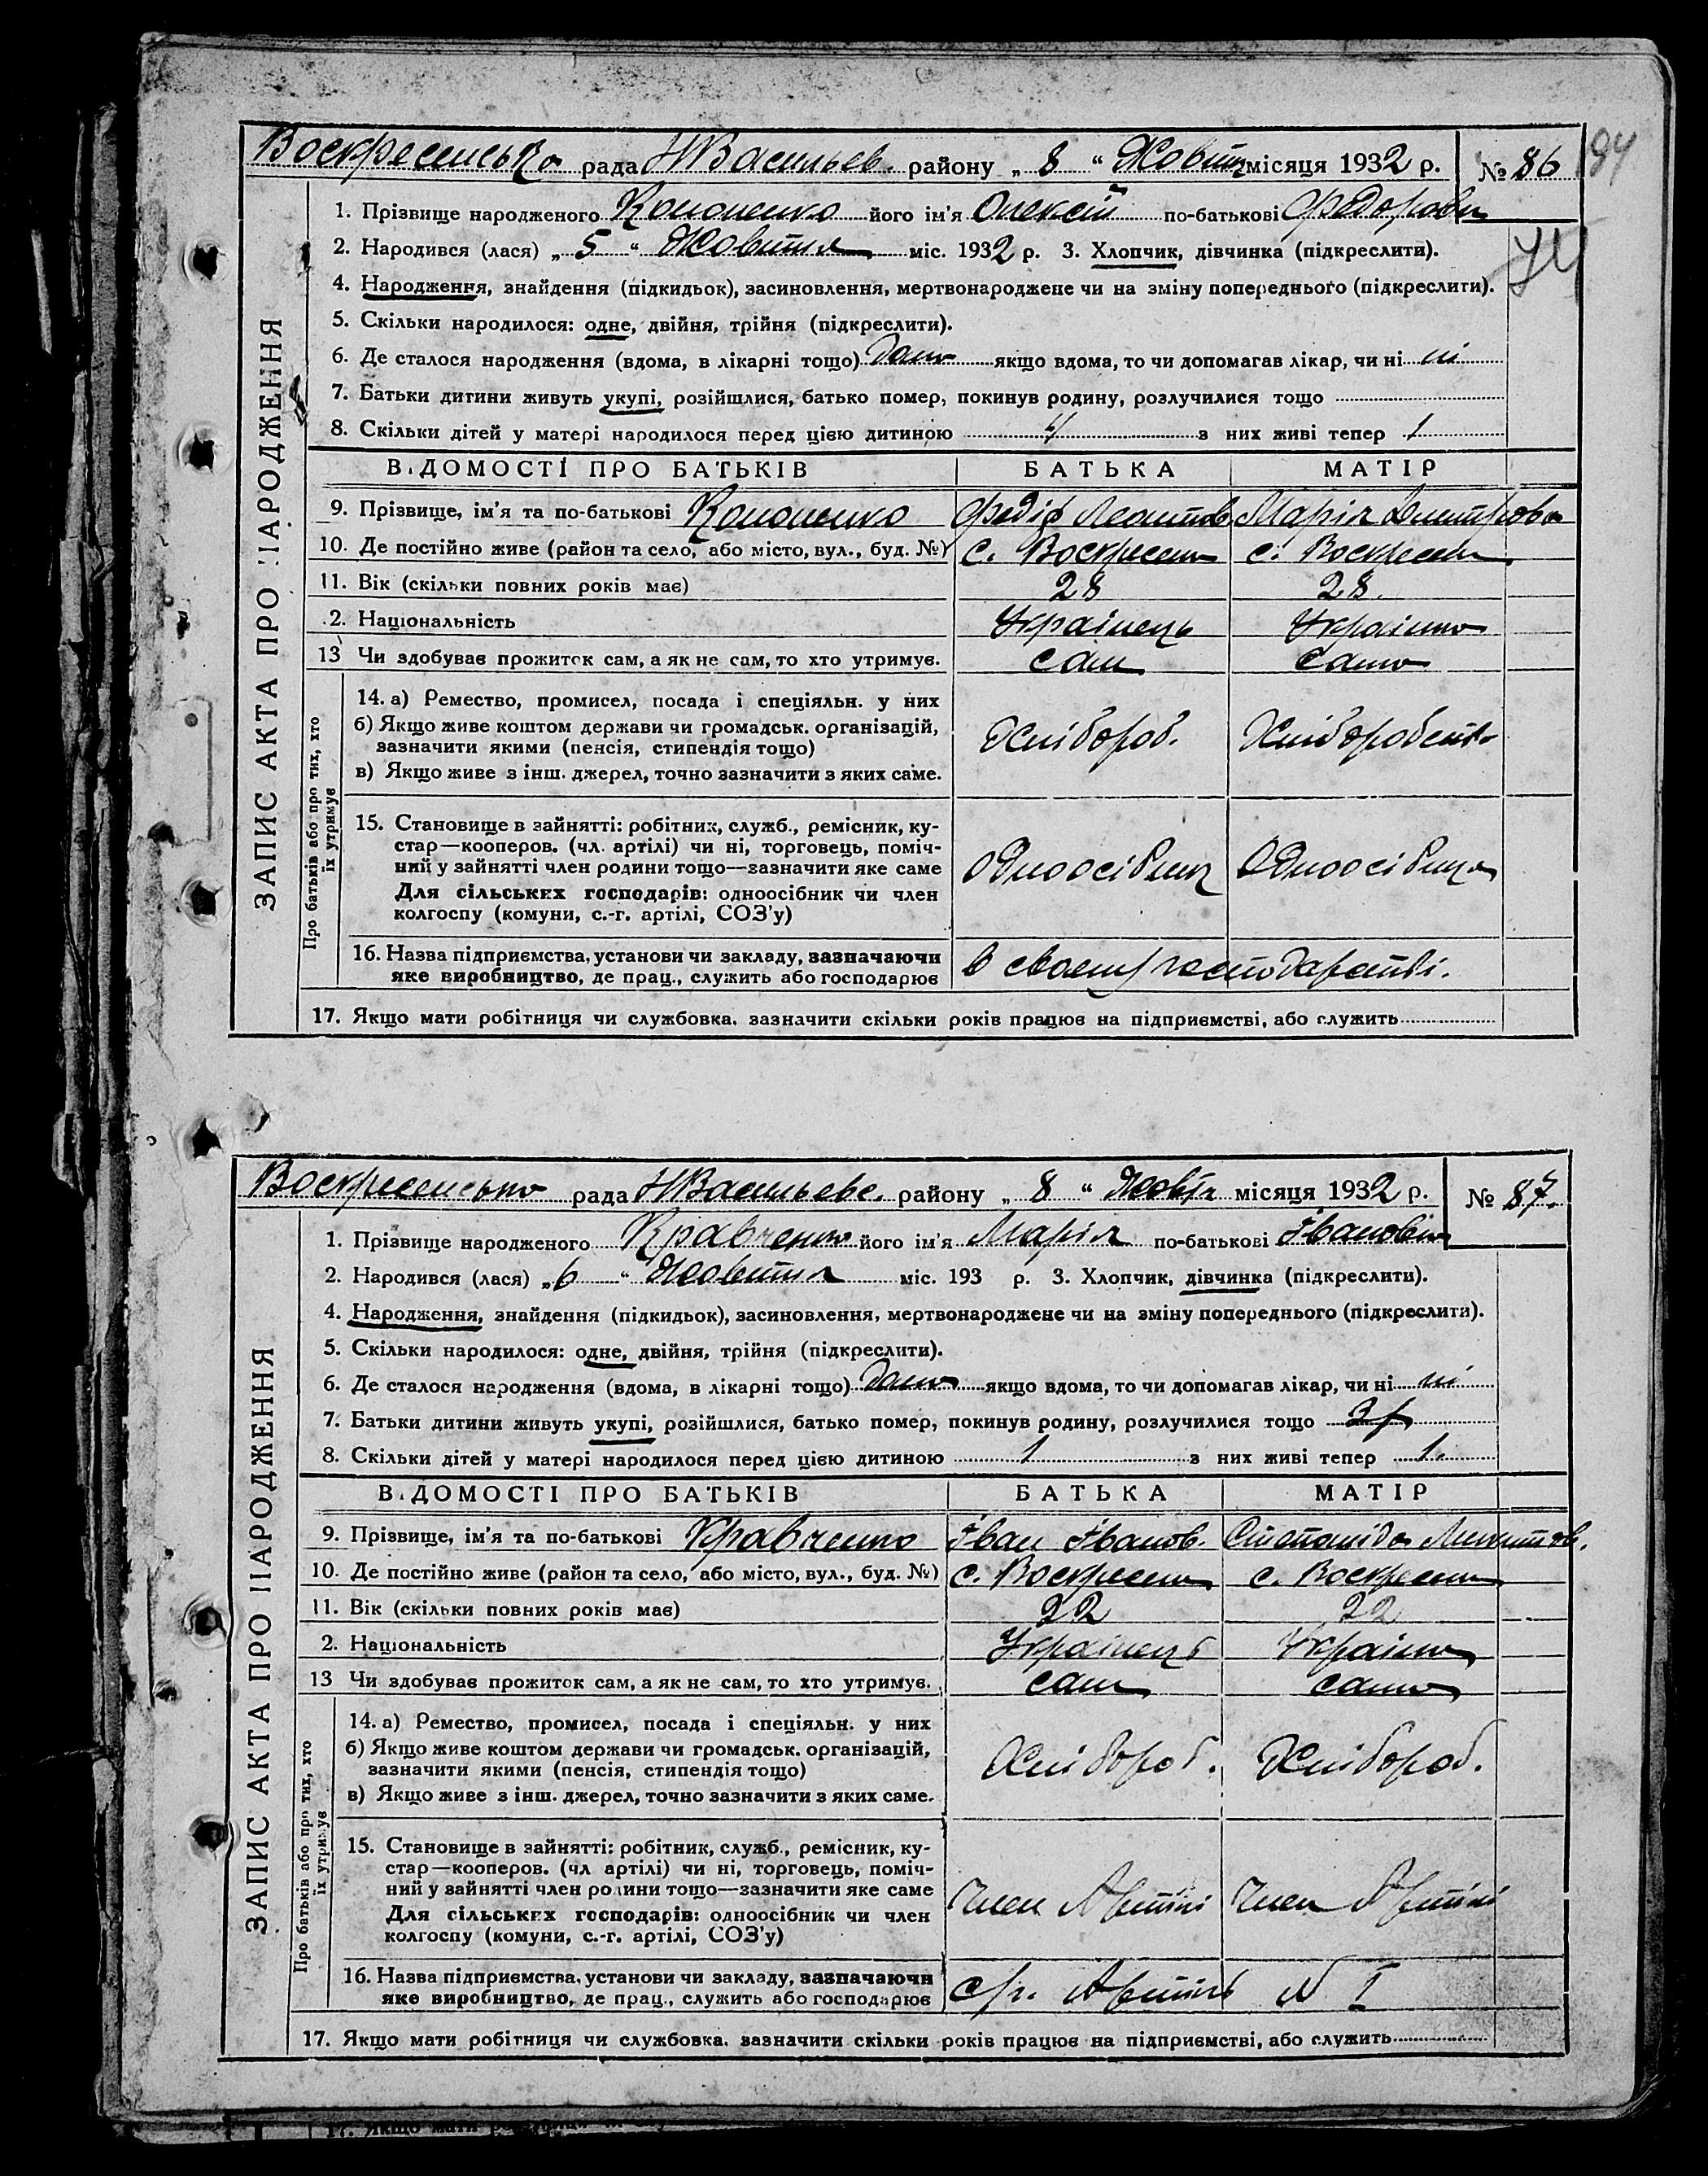 Воскресенська рада НВасильев. району „ 8 “ Жовтн місяця 1932 р. № 86 194
1. Прізвище народженого Кононенко його ім'я Олексій по-батькові Федорови
2. Народився (лася) „ 5 “ Жовтня міс. 1932 р. 3. Хлопчик, дівчинка (підкреслити).
4. Народження, знайдення (підкидьок), засиновлення, мертвонароджене чи на зміну попереднього (підкреслити).
5. Скільки народилося: одне, двійня, трійня (підкреслити).
6. Де сталося народження (вдома, в лікарні тощо) дома якщо вдома, то чи допомагав лікар, чи ні ні
7. Батьки дитини живуть укупі, розійшлися, батько помер, покинув родину, розлучилися тощо
8. Скільки дітей у матері народилося перед цією дитиною 4 з них живі тепер 1
ВІДОМОСТІ ПРО БАТЬКІВ БАТЬКА МАТІР
9. Прізвище, ім'я та по-батькові Кононенко Федір Леонтов Марія Дмитрова
10. Де постійно живе (район та село, або місто, вул., буд. №) с. Воскресен с. Воскресен
11. Вік (скільки повних років має) 28 28.
2. Національність Українець Українка
13 Чи здобуває прожиток сам, а як не сам, то хто утримує. сам сама
14. а) Ремество, промисел, посада і спеціяльн. у них
б) Якщо живе коштом держави чи громадськ. організацій,
зазначити якими (пенсія, стипендія тощо) Хлібороб. Хліборобств
в) Якщо живе з інш. джерел, точно зазначити з яких саме.
15. Становище в зайнятті: робітник, служб., ремісник, ку-
стар—кооперов. (чл. артілі) чи ні, торговець, поміч-
ний у зайнятті член родини тощо—зазначити яке саме Одноосібник Одноосібниця
Для сільських господарів: одноосібник чи член
колгоспу (комуни, с.-г. артілі, СОЗ'у)
16. Назва підприємства, установи чи закладу, зазначаючи
яке виробництво, де прац., служить або господарює в своему господарстві.
17. Якщо мати робітниця чи службовка, зазначити скільки років працює на підприємстві, або служить
ЗАПИС АКТА ПРО НАРОДЖЕННЯ
Про батьків або про тих, хто
їх утримує
Воскресенська рада НВасильевс. району „ 8 “ Жовтн місяця 1932 р. № 87.
1. Прізвище народженого Кравченко його ім'я Марія по-батькові Івановна
2. Народився (лася) „ 6 “ Жовтня міс. 193 р. 3. Хлопчик, дівчинка (підкреслити).
4. Народження, знайдення (підкидьок), засиновлення, мертвонароджене чи на зміну попереднього (підкреслити).
5. Скільки народилося: одне, двійня, трійня (підкреслити).
6. Де сталося народження (вдома, в лікарні тощо) дома якщо вдома, то чи допомагав лікар, чи ні ні
7. Батьки дитини живуть укупі, розійшлися, батько помер, покинув родину, розлучилися тощо
8. Скільки дітей у матері народилося перед цією дитиною 1 з них живі тепер 1.
ВІДОМОСТІ ПРО БАТЬКІВ БАТЬКА МАТІР
9. Прізвище, ім'я та по-батькові Кравченко Іван Іванов. Степанида
10. Де постійно живе (район та село, або місто, вул., буд. №) с. Воскресен с. Воскресен
11. Вік (скільки повних років має) 22 22
2. Національність Українець Українка
13 Чи здобуває прожиток сам, а як не сам, то хто утримує. сам сама
14. а) Ремество, промисел, посада і спеціяльн. у них
б) Якщо живе коштом держави чи громадськ. організацій,
зазначити якими (пенсія, стипендія тощо) Хлібороб. Хлібороб.
в) Якщо живе з інш. джерел, точно зазначити з яких саме.
15. Становище в зайнятті: робітник, служб., ремісник, ку-
стар—кооперов. (чл артілі) чи ні, торговець, поміч-
ний у зайнятті член родини тощо—зазначити яке саме член Артілі член Артілі
Для сільських господарів: одноосібник чи член
колгоспу (комуни, с.-г. артілі, СОЗ'у)
16. Назва підприємства, установи чи закладу, зазначаючи
яке виробництво, де прац., служить або господарює с/г. Артіль № I
17. Якщо мати робітниця чи службовка, зазначити скільки років працює на підприємстві, або служить
ЗАПИС АКТА ПРО НАРОДЖЕННЯ
Про батьків або про тих, хто
їх утримує